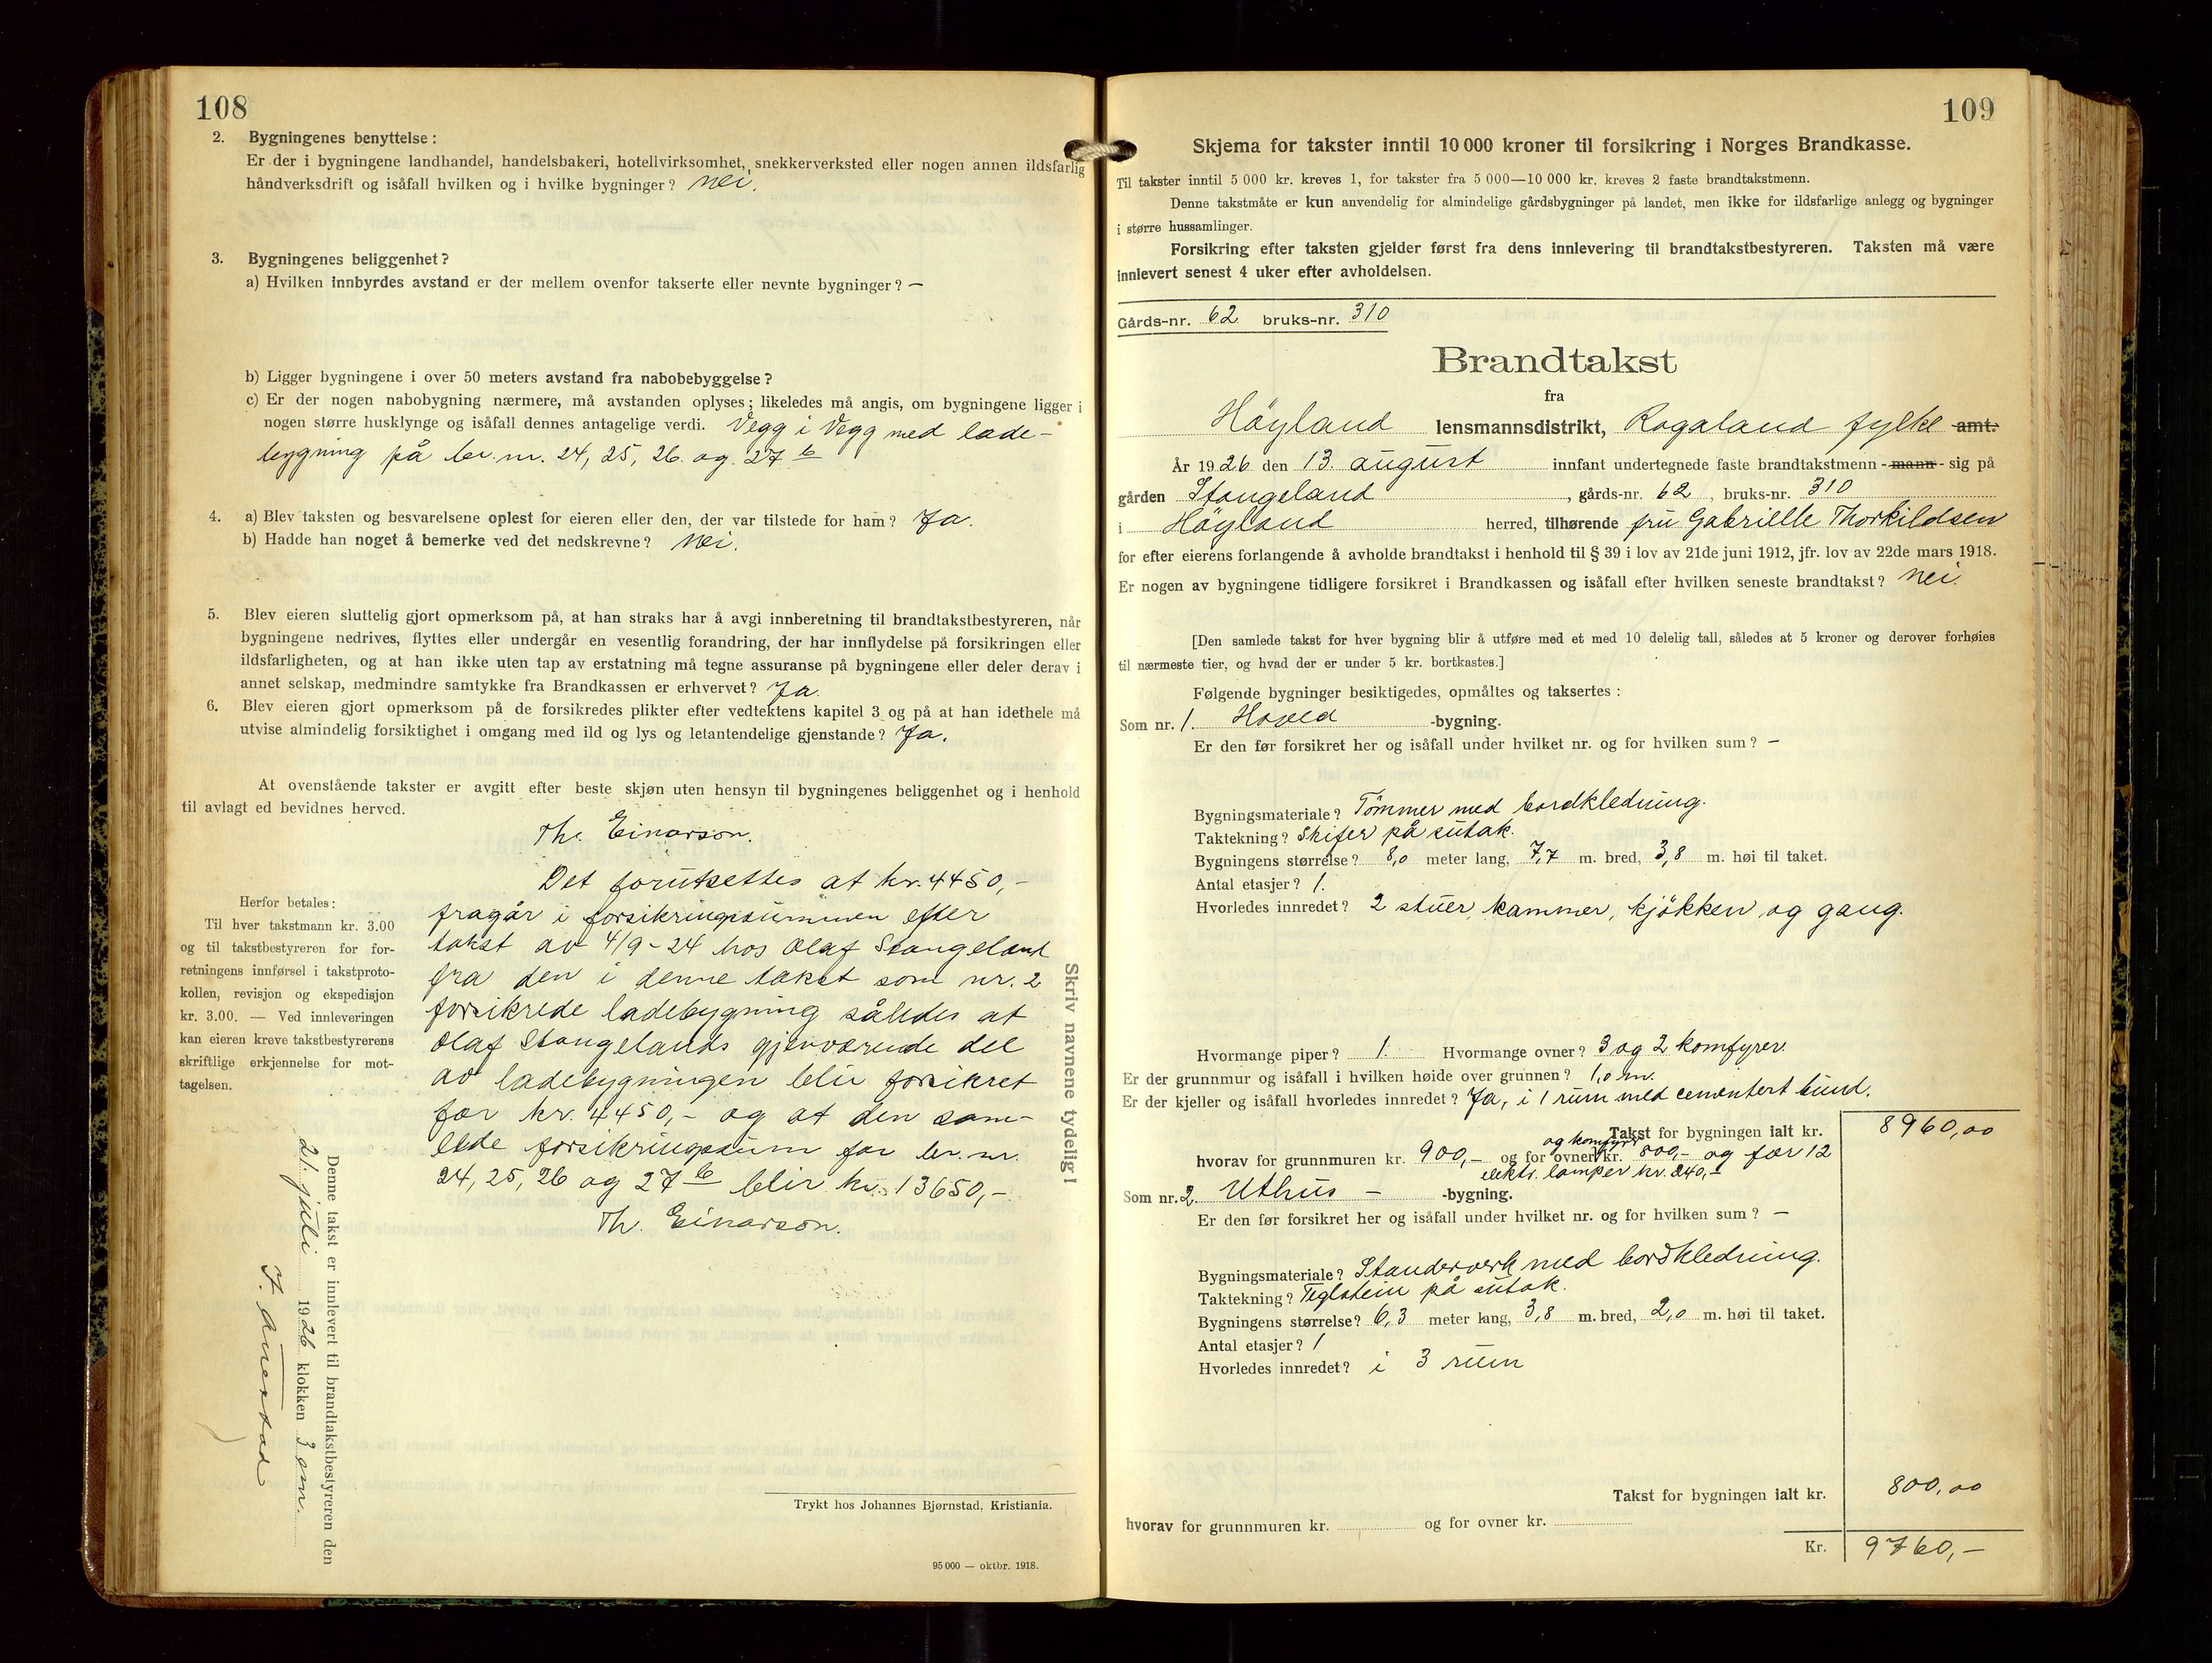 108
2. Bygningenes benyttelse:
Er der i bygningene landhandel, handelsbakeri, hotellvirksomhet, snekkerverksted eller nogen annen ildsfarlig
håndverksdrift og isåfall hvilken og i hvilke bygninger? Nei.
3. Bygningenes beliggenhet?
a) Hvilken innbyrdes avstand er der mellem ovenfor takserte eller nevnte bygninger? —
b) Ligger bygningene i over 50 meters avstand fra nabobebyggelse?
c) Er der nogen nabobygning nærmere, må avstanden oplyses; likeledes må angis, om bygningene ligger i
nogen større husklynge og isåfall dennes antagelige verdi. Vegg i Vegg med lade-
bygning på br. nr. 24, 25, 26 og 27 b
4. a) Blev taksten og besvarelsene oplest for eieren eller den, der var tilstede for ham? Ja.
b) Hadde han noget å bemerke ved det nedskrevne? Nei.
5. Blev eieren sluttelig gjort opmerksom på, at han straks har å avgi innberetning til brandtakstbestyreren, når
bygningene nedrives, flyttes eller undergår en vesentlig forandring, der har innflydelse på forsikringen eller
ildsfarligheten, og at han ikke uten tap av erstatning må tegne assuranse på bygningene eller deler derav i
annet selskap, medmindre samtykke fra Brandkassen er erhvervet? Ja.
6. Blev eieren gjort opmerksom på de forsikredes plikter efter vedtektens kapitel 3 og på at han idethele må
utvise almindelig forsiktighet i omgang med ild og lys og letantendelige gjenstande? Ja.
At ovenstående takster er avgitt efter beste skjøn uten hensyn til bygningenes beliggenhet og i henhold
til avlagt ed bevidnes herved.
Th. Einarson.
Det forutsettes at kr. 4450,-
fragår i forsikringssummen efter
takst av 4/9-24 hos Olaf Stangeland
fra den i denne takst som nr. 2
forsikrede ladebygning således at
Olaf Stangelands gjenværende del
av ladebygningen blir forsikret
for kr. 4450,- og at den sam-
lede forsikringssum for br. nr.
24, 25, 26 og 27 b blir kr. 13650,-
Th. Einarson.
Herfor betales:
Til hver takstmann kr. 3.00
og til takstbestyreren for for-
retningens innførsel i takstproto-
kollen, revisjon og ekspedisjon
kr. 3.00. — Ved innleveringen
kan eieren kreve takstbestyrerens
skriftlige erkjennelse for mot-
tagelsen.
Skriv navnene tydelig!
Denne takst er innlevert til brandtakstbestyreren den
21. juli 1926 klokken 3 em.
Trykt hos Johannes Bjørnstad, Kristiania.
95 000 — oktbr. 1918.
109
Skjema for takster inntil 10 000 kroner til forsikring i Norges Brandkasse.
Til takster inntil 5 000 kr. kreves 1, for takster fra 5 000—10 000 kr. kreves 2 faste brandtakstmenn.
Denne takstmåte er kun anvendelig for almindelige gårdsbygninger på landet, men ikke for ildsfarlige anlegg og bygninger
i større hussamlinger.
Forsikring efter taksten gjelder først fra dens innlevering til brandtakstbestyreren. Taksten må være
innlevert senest 4 uker efter avholdelsen.
Gårds-nr. 62 bruks-nr. 310
Brandtakst
fra
Höyland lensmannsdistrikt, Rogaland fylke amt.
År 1926 den 13. august innfant undertegnede faste brandtakstmenn - mann - sig på
gården Stangeland, gårds-nr. 62, bruks-nr. 310
i Höyland herred, tilhørende fru Gabrielle Thorkildsen
for efter eierens forlangende å avholde brandtakst i henhold til § 39 i lov av 21de juni 1912, jfr. lov av 22de mars 1918.
Er nogen av bygningene tidligere forsikret i Brandkassen og isåfall efter hvilken seneste brandtakst? Nei.
[Den samlede takst for hver bygning blir å utføre med et med 10 delelig tall, således at 5 kroner og derover forhøies
til nærmeste tier, og hvad der er under 5 kr. bortkastes.]
Følgende bygninger besiktigedes, opmåltes og taksertes:
Som nr. 1. Hoved -bygning.
Er den før forsikret her og isåfall under hvilket nr. og for hvilken sum? —
Bygningsmateriale? Tömmer med bordkledning.
Taktekning? Skifer på sutak.
Bygningens størrelse? 8,0 meter lang, 7,7 m. bred, 3,8 m. høi til taket.
Antal etasjer? 1.
Hvorledes innredet? 2 stuer, kammer, kjökken og gang.
Hvormange piper? 1. Hvormange ovner? 3 og 2 komfyrer.
Er der grunnmur og isåfall i hvilken høide over grunnen? 1,0 m.
Er der kjeller og isåfall hvorledes innredet? Ja, i 1 rum med cementert bund.
Takst for bygningen ialt kr. 8960,00
og komfyrer
hvorav for grunnmuren kr. 900,- og for ovner kr. 800,- og for 12
elektr. lamper kr. 240,-
Som nr. 2. Uthus — -bygning.
Er den før forsikret her og isåfall under hvilket nr. og for hvilken sum? —
Bygningsmateriale? Standerverk med bordkledning.
Taktekning? Teglstein på sutak.
Bygningens størrelse? 6,3 meter lang, 3,8 m. bred, 2,0 m. høi til taket.
Antal etasjer? 1
Hvorledes innredet? i 3 rum
Takst for bygningen ialt kr. 800,00
hvorav for grunnmuren kr. og for ovner kr.
Kr. 9760,—